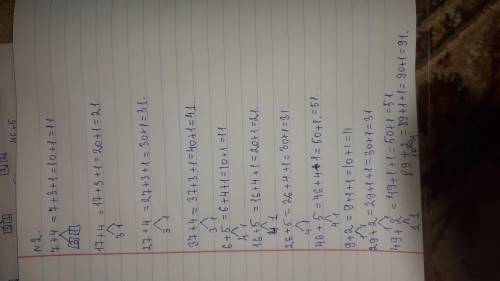 N 2.
7+4 = 7+3+1=10+1=11
3 1
17+4 = 17+3+1=20+1=21.
3 1
27+4 = 27+3+1=30+1=31.
3 1
37+4= 37+3+1=40+1=41.
3 1
6+5=6+4+1=10+1=11
4 1
16+5=16+4+1=20+1=21.
4 1
26+5= 26+4+1=30+1=31
4 1
46+5=46+4+1=50+1=51
4 1
9+2=9+1+1=10+1=11
1 1
29+2=29+1+1=30+1=31
1 1
49+2=49+1+1=50+1=51
1 1
89+2=89+1+1=90+1=91.
46+5